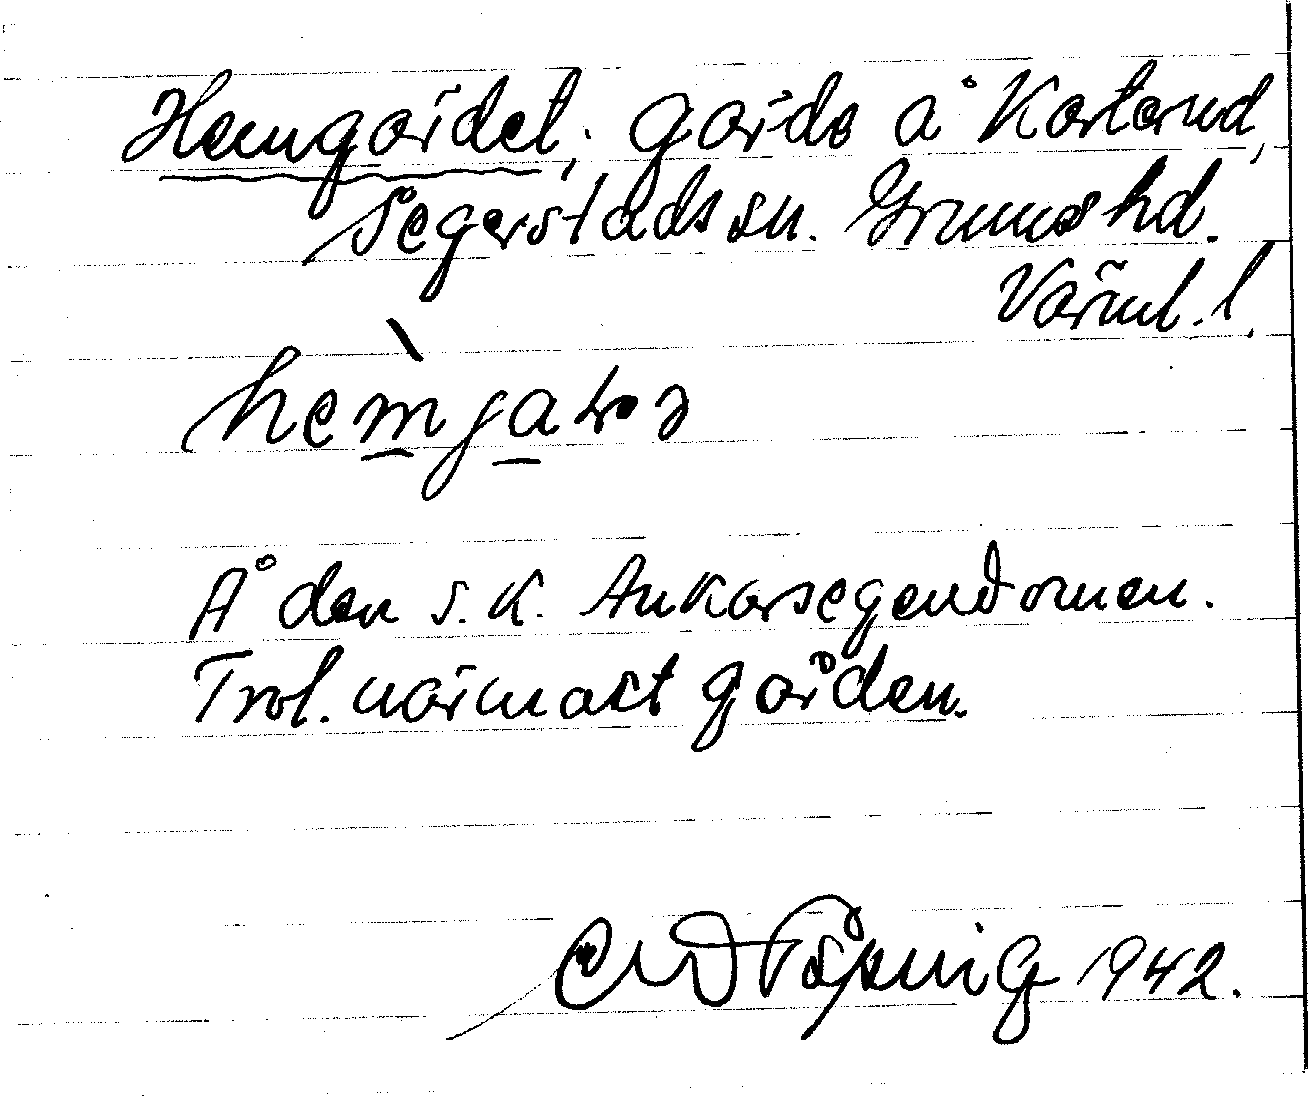 Hemgärdet, gärde å Karterud,
Segerstads sn. Grums hd.
Värml. l.
hemjaɽə
Å den s.k. Ankarsegendomen.
Trol. närmast gården.
1942.